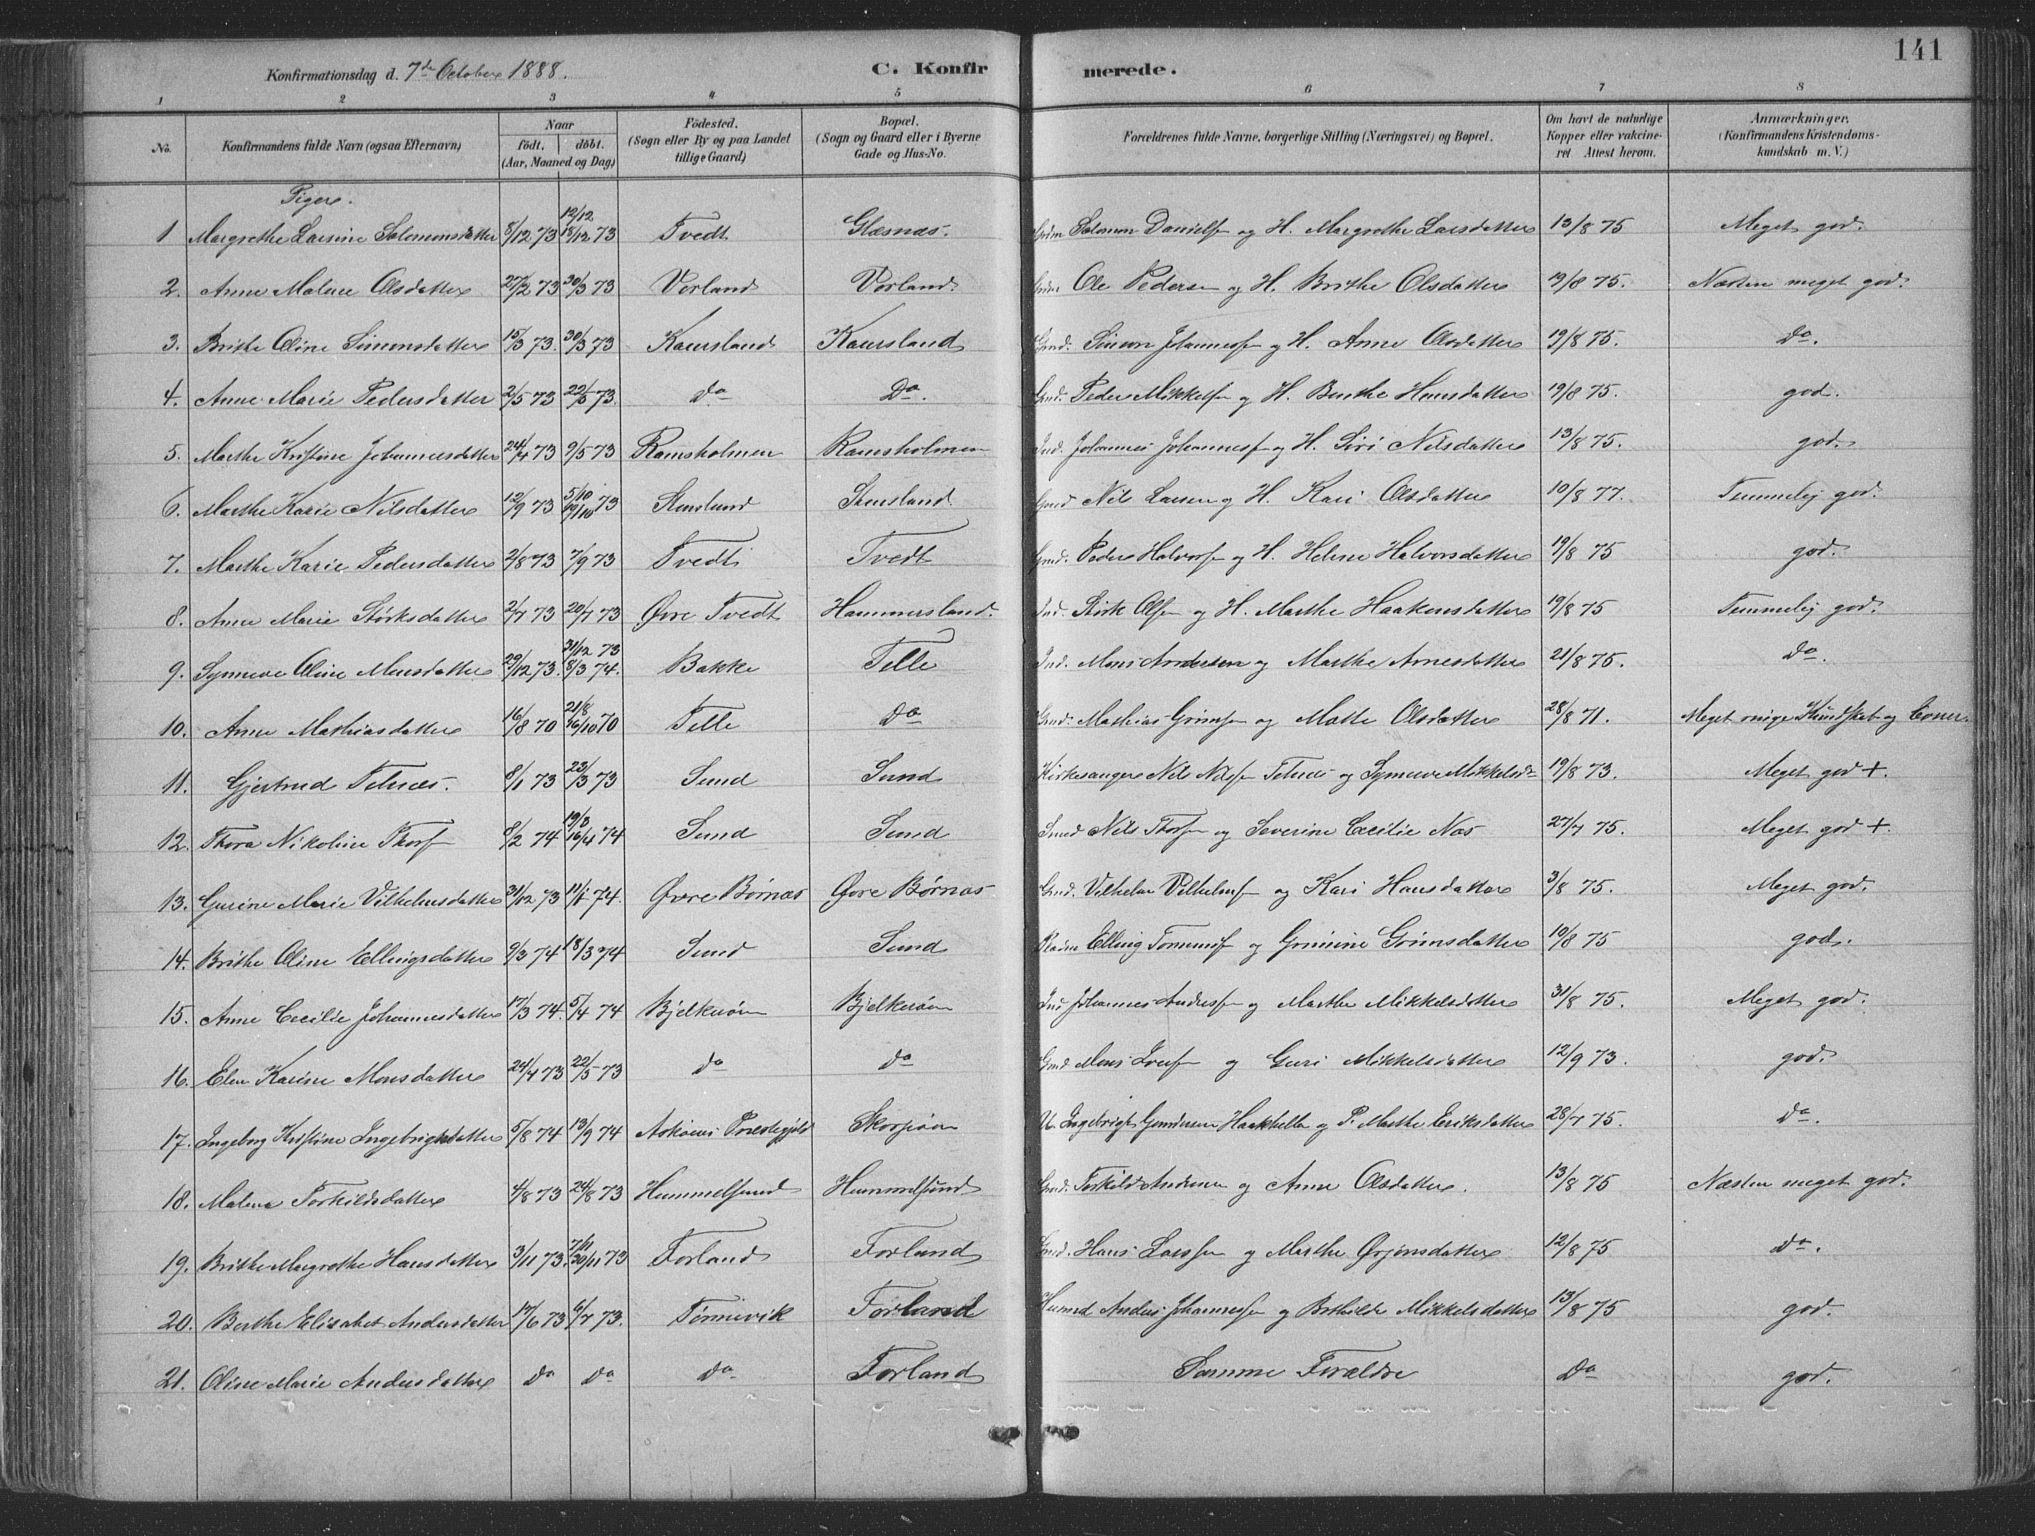 141
Konfirmationsdag d. 7de October 1888.
C. Konfirmerede.
1 2 3 4 5 6 7 8
No. Konfirmandens fulde Navn (ogsaa Efternavn) Naar født. døbt. (Aar, Maaned og Dag) Födested. (Sogn eller By og paa Landet tillige Gaard) Bopæl. (Sogn og Gaard eller i Byerne Gade og Hus-No. Forældrenes fulde Navne, borgerlige Stilling (Næringsvei) og Bopæl. Om havt de naturlige Kopper eller vakcineret Attest herom. Anmærkninger. (Konfirmandens Kristendomskundskab m. V.)
Piger.
1 Margrethe Larsine Salomonsdatter 8/12 73 12/12 18/12 73 Tvedt Glesnæs. Salomon Danielsen og H. Margrethe Larsdatter 13/8 75 Meget god.
2. Anne Malene Olsdatter 27/2 73 30/3 73 Vorland Vorland. Ole Pedersen og H. Brithe Olsdatter 19/8 75. Næsten meget god.
3. Brithe Oline Simonsdatter 15/3 73. 30/3 73 Kausland Kausland Gmd. Simon Johannessen og H. Anne Olsdatter 19/8 75. do.
4. Anne Marie Pedersdatter 2/5 73 22/5 73. do Do. Gmd. Peder Mikkelsen og H. Berthe Hansdatter 19/8 75. god.
5. Marthe Kristine Johannesdatter 24/4 73 9/5 73 Ramsholmen Ramsholmen Ind. Johannes Johannessen og H. Siri Nilsdatter 13/8 75. god.
6. Marthe Karie Nilsdatter 12/9 73 5/10 19/10 73 Stensland Stensland Gmd Nils Larsen og H. Kari Olsdatter 10/8 77. Temmelig god.
7. Marthe Karie Pedersdatter 2/8 73 7/9 73 Tvedt Tvedt Gmd. Peder Halvorsen og H. Helene Halvorsdatter 19/8 75 god.
8. Anne Marie Størksdatter 2/7 73 20/7 73 Øvre Tvedt Hammersland. Ind. Størk Olsen og H. Marthe Haakensdatter 19/8 75 Temmelig god.
9. Synneve Oline Monsdatter 29/12 73. 31/12 73 8/3 74. Bakke Telle Ind. Mons Andersen og Marthe Arnesdatter 21/8 75. do.
10. Anne Mathiasdatter 16/8 70 21/8 16/10 70 Telle do Gmd. Mathias Grimsen og Matte Olsdatter 28/8 71. Meget ringe Kundskab og
11. Gjertrud Telnæs. 8/1 73 23/3 73 Sund Sund Kirkesanger Nils Nilsen Telnæs og Synneve Mikkelsd= 19/8 73. Meget god +.
12. Thora Nikoline Thorsen 8/2 74 19/3 16/4 74 Sund Sund Smed Nils Thorsen og Severine Cecilie Næs 27/7 75. Meget god +.
13. Gurine Marie Vilhelmsdatter 31/12 73 11/1 74. Øvre Børnæs Øvre Børnæs Gmd. Vilhelm Vilhelmsen og Kari Hansdatter 3/8 75. Meget god.
14. Brithe Oline Ellingsdatter 9/3 74 18/3 74 Sund Sund Elling og Grimsdatter 19/8 75 god.
15. Anne Cecilie Johannesdatter 17/3 74. 5/4 74 Bjelkerøen Bjelkerøen Ind Johannes Andersen og Marthe Mikkelsdatter 31/8 75. Meget god.
16. Elen Karine Monsdatter 24/4 73 22/5 73 do do Gmd Mons og Guri Mikkelsdatter 12/9 73. god.
17. Ingeborg Kristine Ingebrigtsdatter 5/8 74 13/9 74 Askøens Præstegjeld Skorpøen U. Ingebrigt Gundersen og P. Marthe Eriksdatter 28/7 75. do.
18. Malena Torkildsdatter 4/8 73 24/8 73 Hummelsund Hummelsund Gmd. Torkild Andersen og Anne Olsdatter. 13/8 75 Næsten meget god.
19. Brithe Margrethe Hansdatter 3/11 73. 7/11 20/11 73 Forland Forland Gmd. Hans Larssen og Marthe Ørjansdatter 12/8 75 do.
20. Berthe Elisabet Andersdatter 17/6 73 6/7 73. Tønnevik Forland Anders Johannessen og Bothilde Mikkelsdatter 13/8 75 god.
21. Oline Marie Andersdatter do do do Forland Samme Forældre Do god.